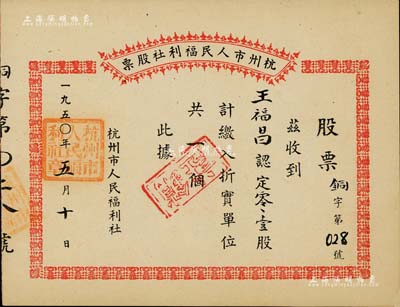 上海陽明拍賣
杭州市人民福利社股票
股票
銅字第028號
茲收到
王福昌認定零壹股
計繳入折實單位
共一個
此據
杭州市人民福利社
一九五〇年五月十日
銅字第〇二八號